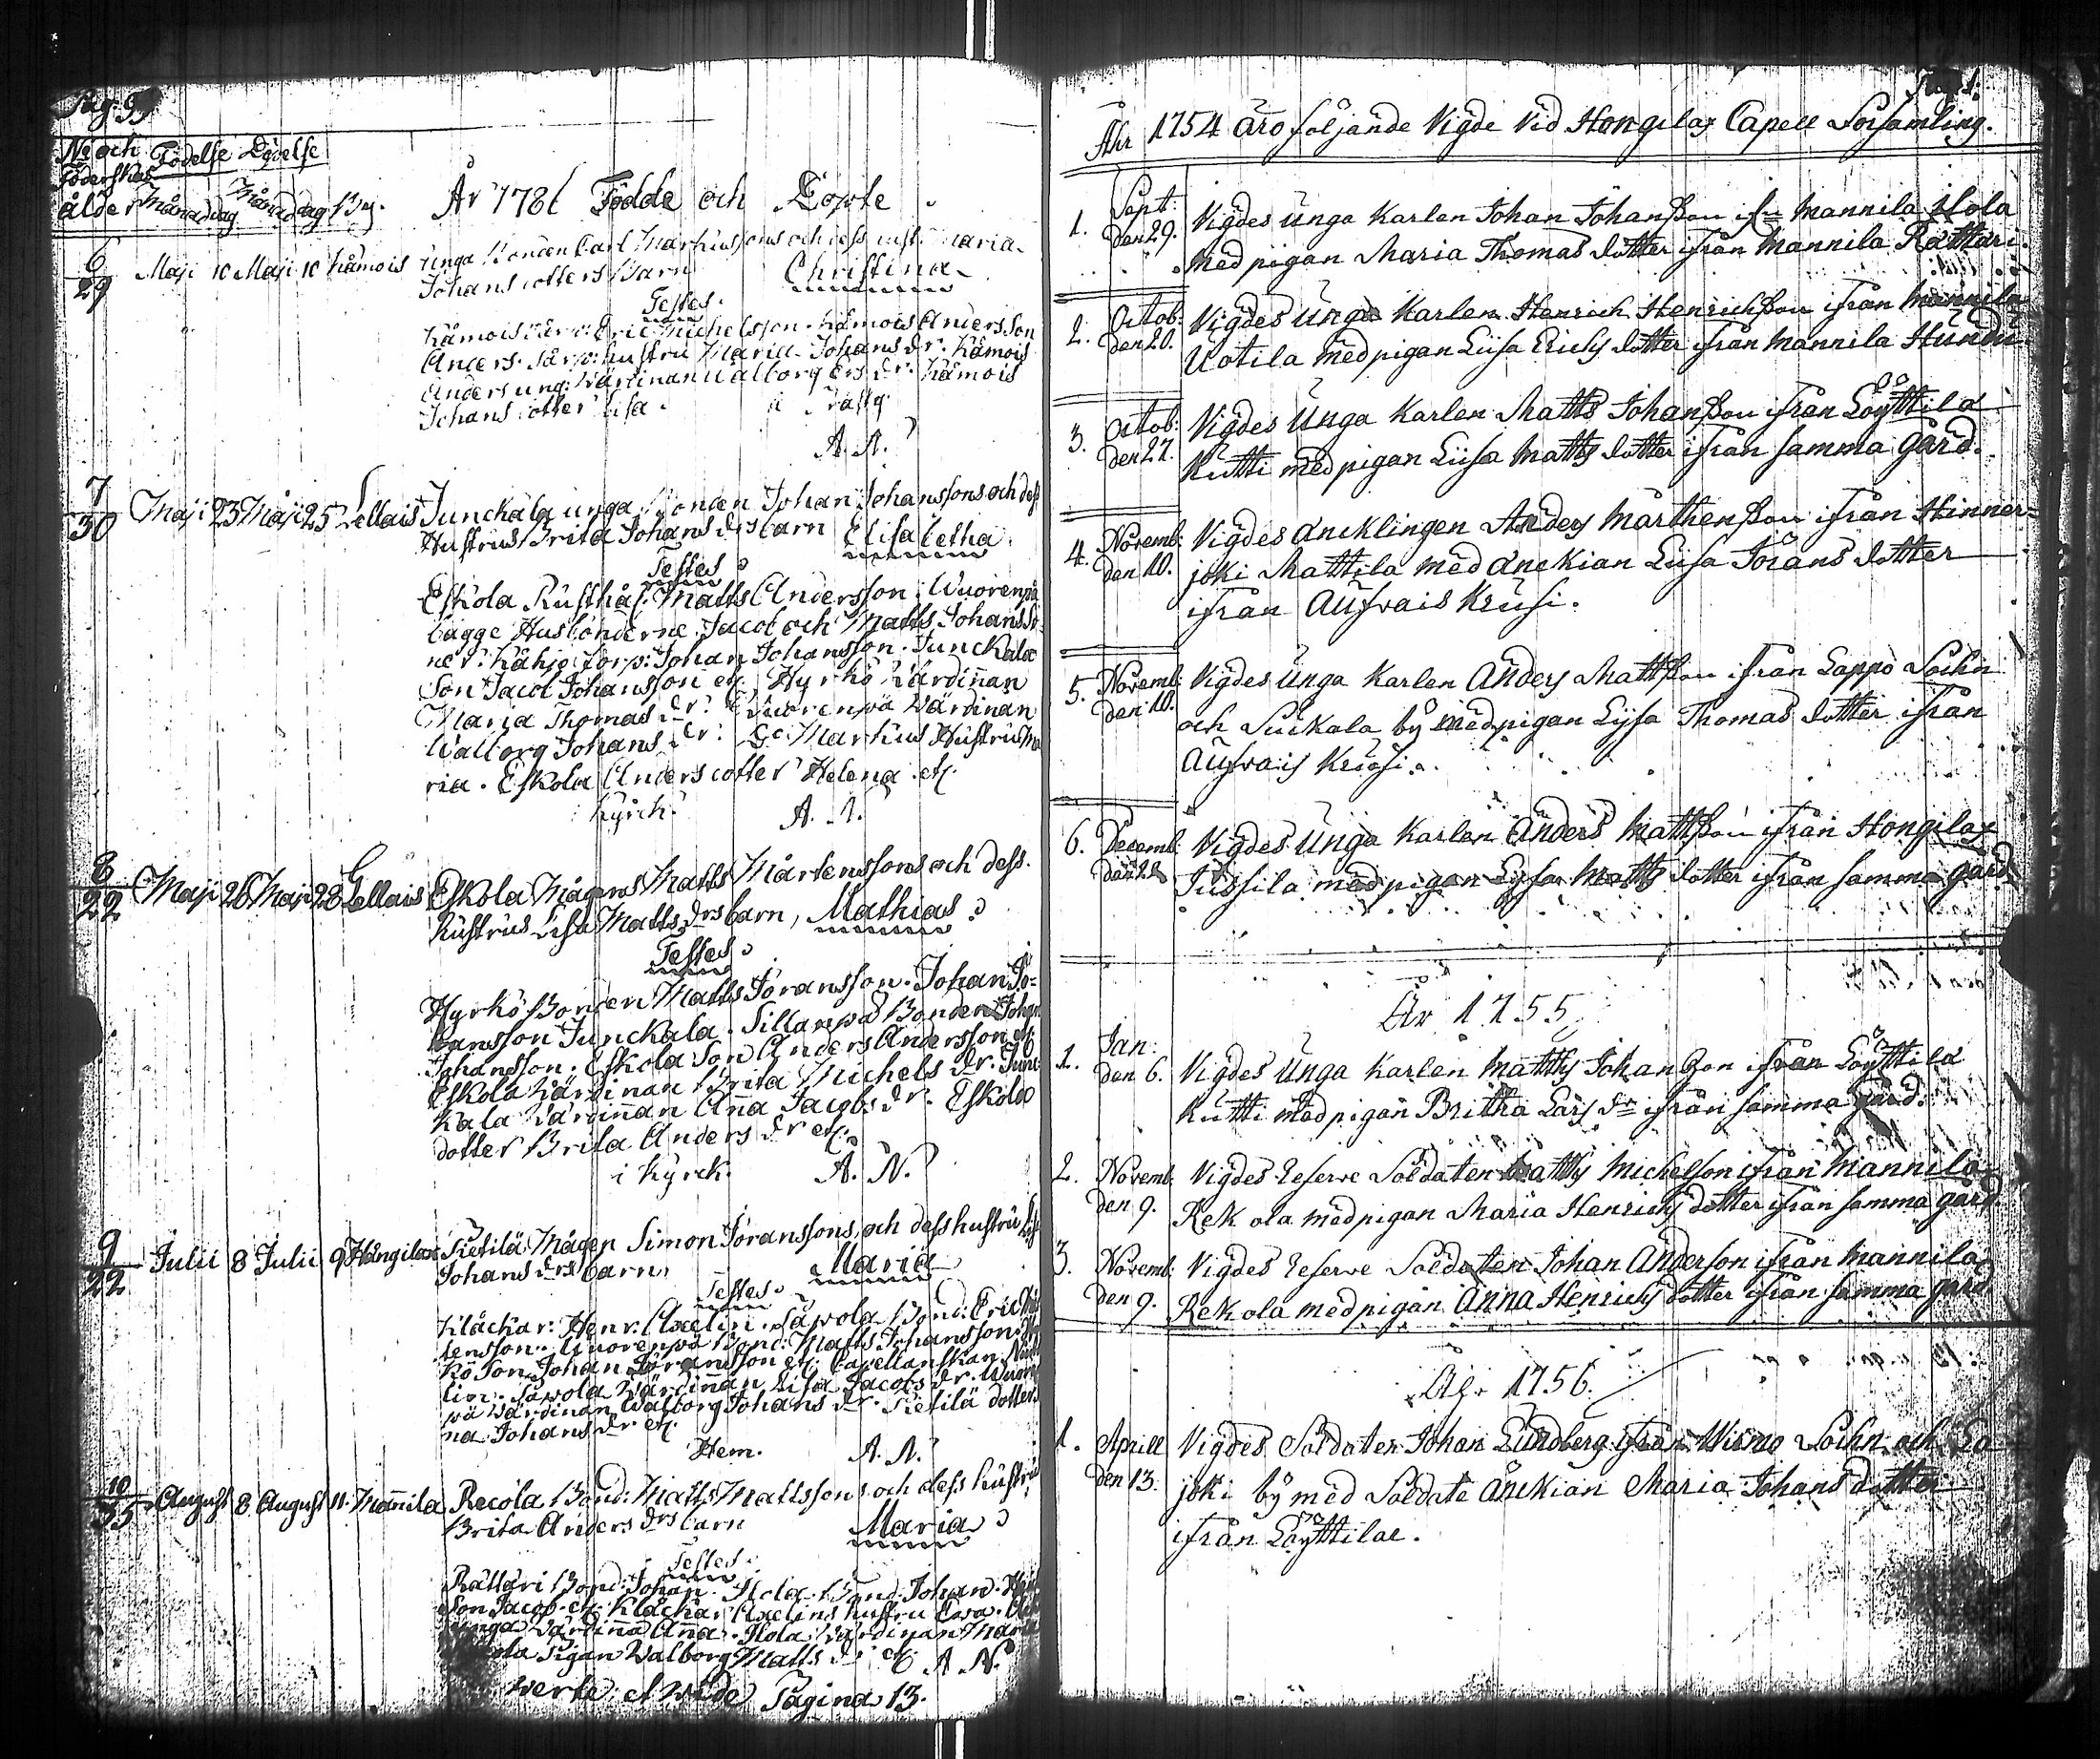 Pag. 99
No och Födelse Döpelse
Föderskas
ålder Månad dag Månad dag By.
År 1786 Födde och Döpte.
6 Maji 10 Maji 10 Kåmois Unga Bonden Carl Markussons och dess hust: Maria
29 Johans dotters Barn Christina
Testes.
Anders. hustru Maria Johans dr. Kåmois
Anders ung: Värdinan Walborg Ers dr. Kåmois
Johans dotter Lisa.
A. N.
7 Maji 23 Maji 25 Lellais Junckala unga Bonden Johan Johanssons och dess
30 Hustrus Brita Johans drs barn Elisabetha.
Testes
Eskola Rusthål: Matts Andersson. Wuorenpä
bägge Husbönderne Jacob och Matts Johansso-
ner. Torp: Johan Johansson. Junckala
Son Jacob Johansson etc. Hyrkö Wärdinan
Maria Thomas dr. Wuorenpä Wärdinan
Walborg Johans dr. Markus Hustru Ma
ria. Eskola Anders dotter Helena etc.
Kyrck. A. N.
8 Maji 26 Maji 28 Lellais Eskola Mågens Matts Mårtenssons och dess
22 Hustrus Lisa Matts drs barn, Mathias
Testes
Hyrkö Bonden Matts Jöransson. Johan Jo-
hansson Junckala. Sillanpä Bonden Johan
Johansson. Eskola Son Anders Andersson etc.
Eskola Wärdinan Brita Michels dr. Junc
kala Wärdinnan Anna Jacobs dr. Eskola
dotter Brita Anders dr etc.
i Kyrck. A. N.
9 Julii 8 Julii 9 Hångilax Sietilä Mågen Simon Jöranssons och dess hustru Lisa
22 Johans drs barn Maria
Testes
Klåckar: Henr. Axelin. Sawola Bond: Eric Mår
tensson. Wuorenpä Bond: Matts Johansson. Hyr
kö Son Johan Jöransson etc. Capellanskan
lin. Sawola Wärdinnan Lisa Jacobs dr. Wuoren
pä Wärdinan Walborg Johans dr. Sietilä dotter
na Johans dr etc.
Hem. A. N.
10 August 8 August 11. Mannila Recola Bond: Matts Mattssons och dess hustru
35 Brita Anders drs barn Maria
Testes.
Rättäri Bond: Johan. Ilola Bond: Johan.
Son Jacob etc. Klåckar Axelins hustru
unga Wärdinna Anna. Ilola Wärdinan Maria
Pigan Walborg Matts dr etc. A. N.
werte et wide Pagina 13.
Pag. 1.
Åhr 1754 äro följande Vigde vid Hongilax Capell Församling.
1. Sept: den 29. Vigdes Unga Karlen Johan Johansson ifrn Mannila Ilola
med pigan Maria Thomas dotter ifrån Mannila Rättäri.
2. Octob: den 20. Vigdes Unga Karlen Henrich Henrichsson ifrån Mannila
Uotila med pigan Liisa Erichs dotter ifrån Mannila Hundi
3. Octob: den 27. Vigdes Unga Karlen Matts Johansson ifrån Löyttilä
Kutti med pigan Liisa Matts dotter ifrån samma gård.
4. Novemb: den 10. Vigdes Ancklingen Anders Mårthensson ifrån Hinner=
joki Mattila med anckian Liisa Jörans dotter
ifrån Aufvais Krusi.
5. Novemb: den 10. Vigdes Unga Karlen Anders Mattsson ifrån Lappo Sochn
och Suckala by med pigan Lijsa Thomas dotter ifrån
Aufvais Krusi.
6. Decemb: Vigdes Unga Karlen Anders Mattsson ifrån Hongilax
Jussila med pigan Lysa Matts dotter ifrån samma gård
År 1755
1. Jan: den 6. Vigdes Unga Karlen Matths Johanson ifrån Löyttilä
Kutti med pigan Britha Lars dr ifrån samma gård.
2. Novemb: den 9. Vigdes Reserve Soldaten Matths Michelson ifrån Mannila
Rekola med pigan Maria Henrichs dotter ifrån samma gård.
3. Novemb: den 9. Vigdes Reserve Soldaten Johan Anderson ifrån Mannila
Rekola med pigan Anna Henrichs dotter ifrån samma gård.
Åhr 1756.
1. Aprill den 13. Vigdes Soldaten Johan Lundberg ifrån Wirmo Sochn och La
joki by med Soldate Änckian Maria Johans dotter
ifrån Löyttilae.